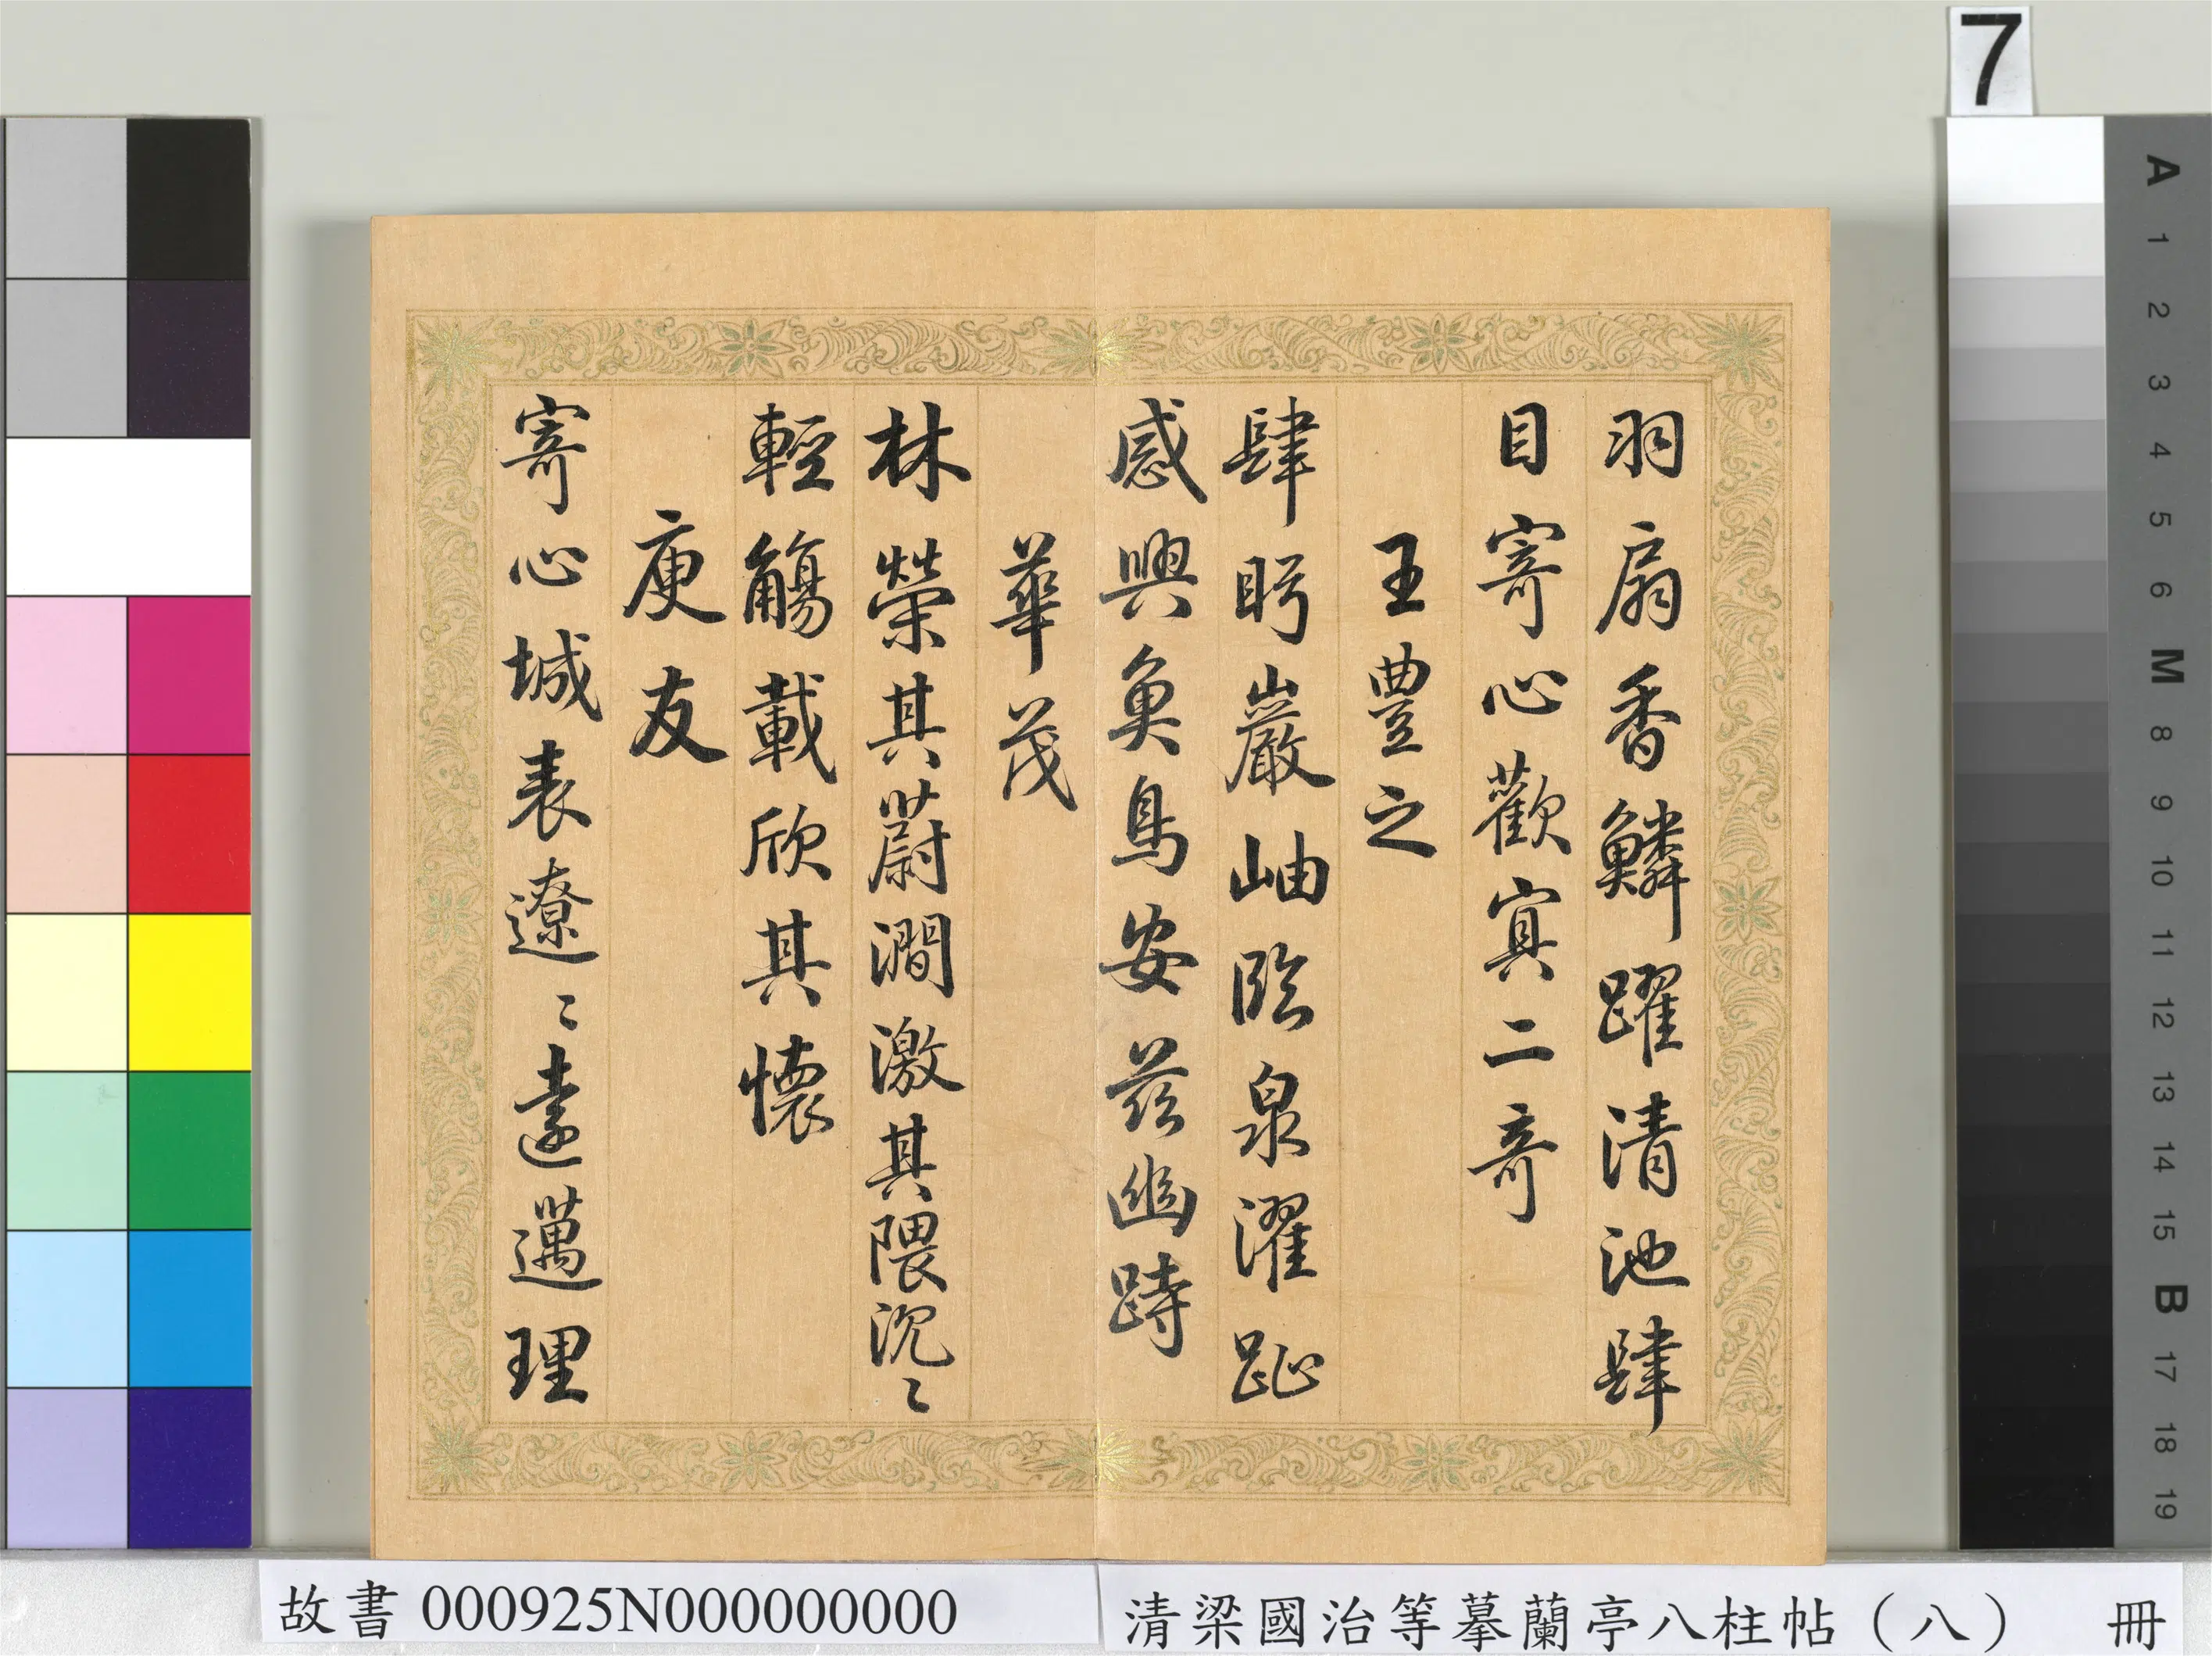 羽扇香鱗躍清池肆
目寄心歡寘二奇
王豊之
肆眄巖岫臨泉濯趾
感興魚鳥安茲幽跱
華茂
林榮其蔚澗激其隈汎〻
輕觴載欣其懷
庾友
寄心域表遼〻遠邁理
7
A
1
2
3
4
5
6
M
8
9
10
11
12
13
14
15
B
17
18
19
故書 000925N000000000
清梁國治等摹蘭亭八柱帖（八） 冊